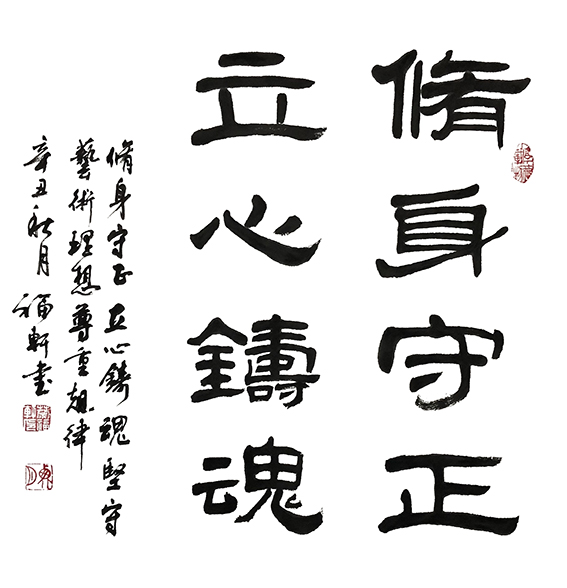 脩身守正
立心鑄魂
脩身守正立心鑄魂堅守
藝術理想尊重規律
辛丑秋月福軒書